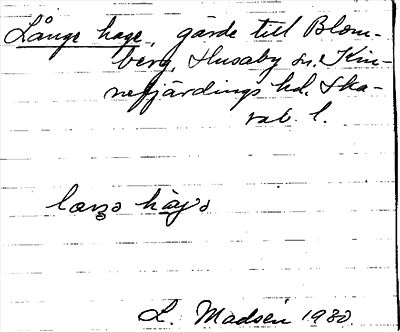 Långe hage, gärde till Blom-
berg, Husaby sn. Kin-
nefjärdings hd. Ska-
rab. l.
laŋə hàgə
L. Madsén 1930